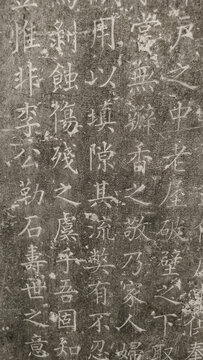 仕奉
戶之中老屋破壁之下取
當無辦香之敬乃家人婦
用以塡隙其流弊有不忍
剝蝕傷殘之虞乎吾固知
惟非李公勒石壽世之意